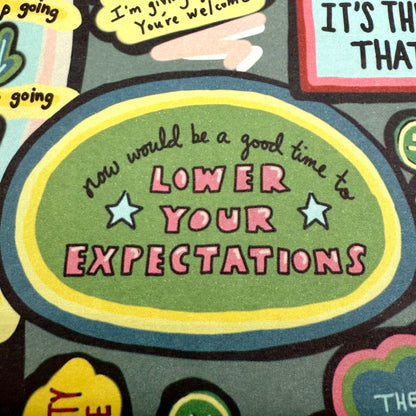 p going
I'm giving
You're welcome
IT'S THE
THA
p going
now would be a good time to
LOWER
YOUR
EXPECTATIONS
TY
THE